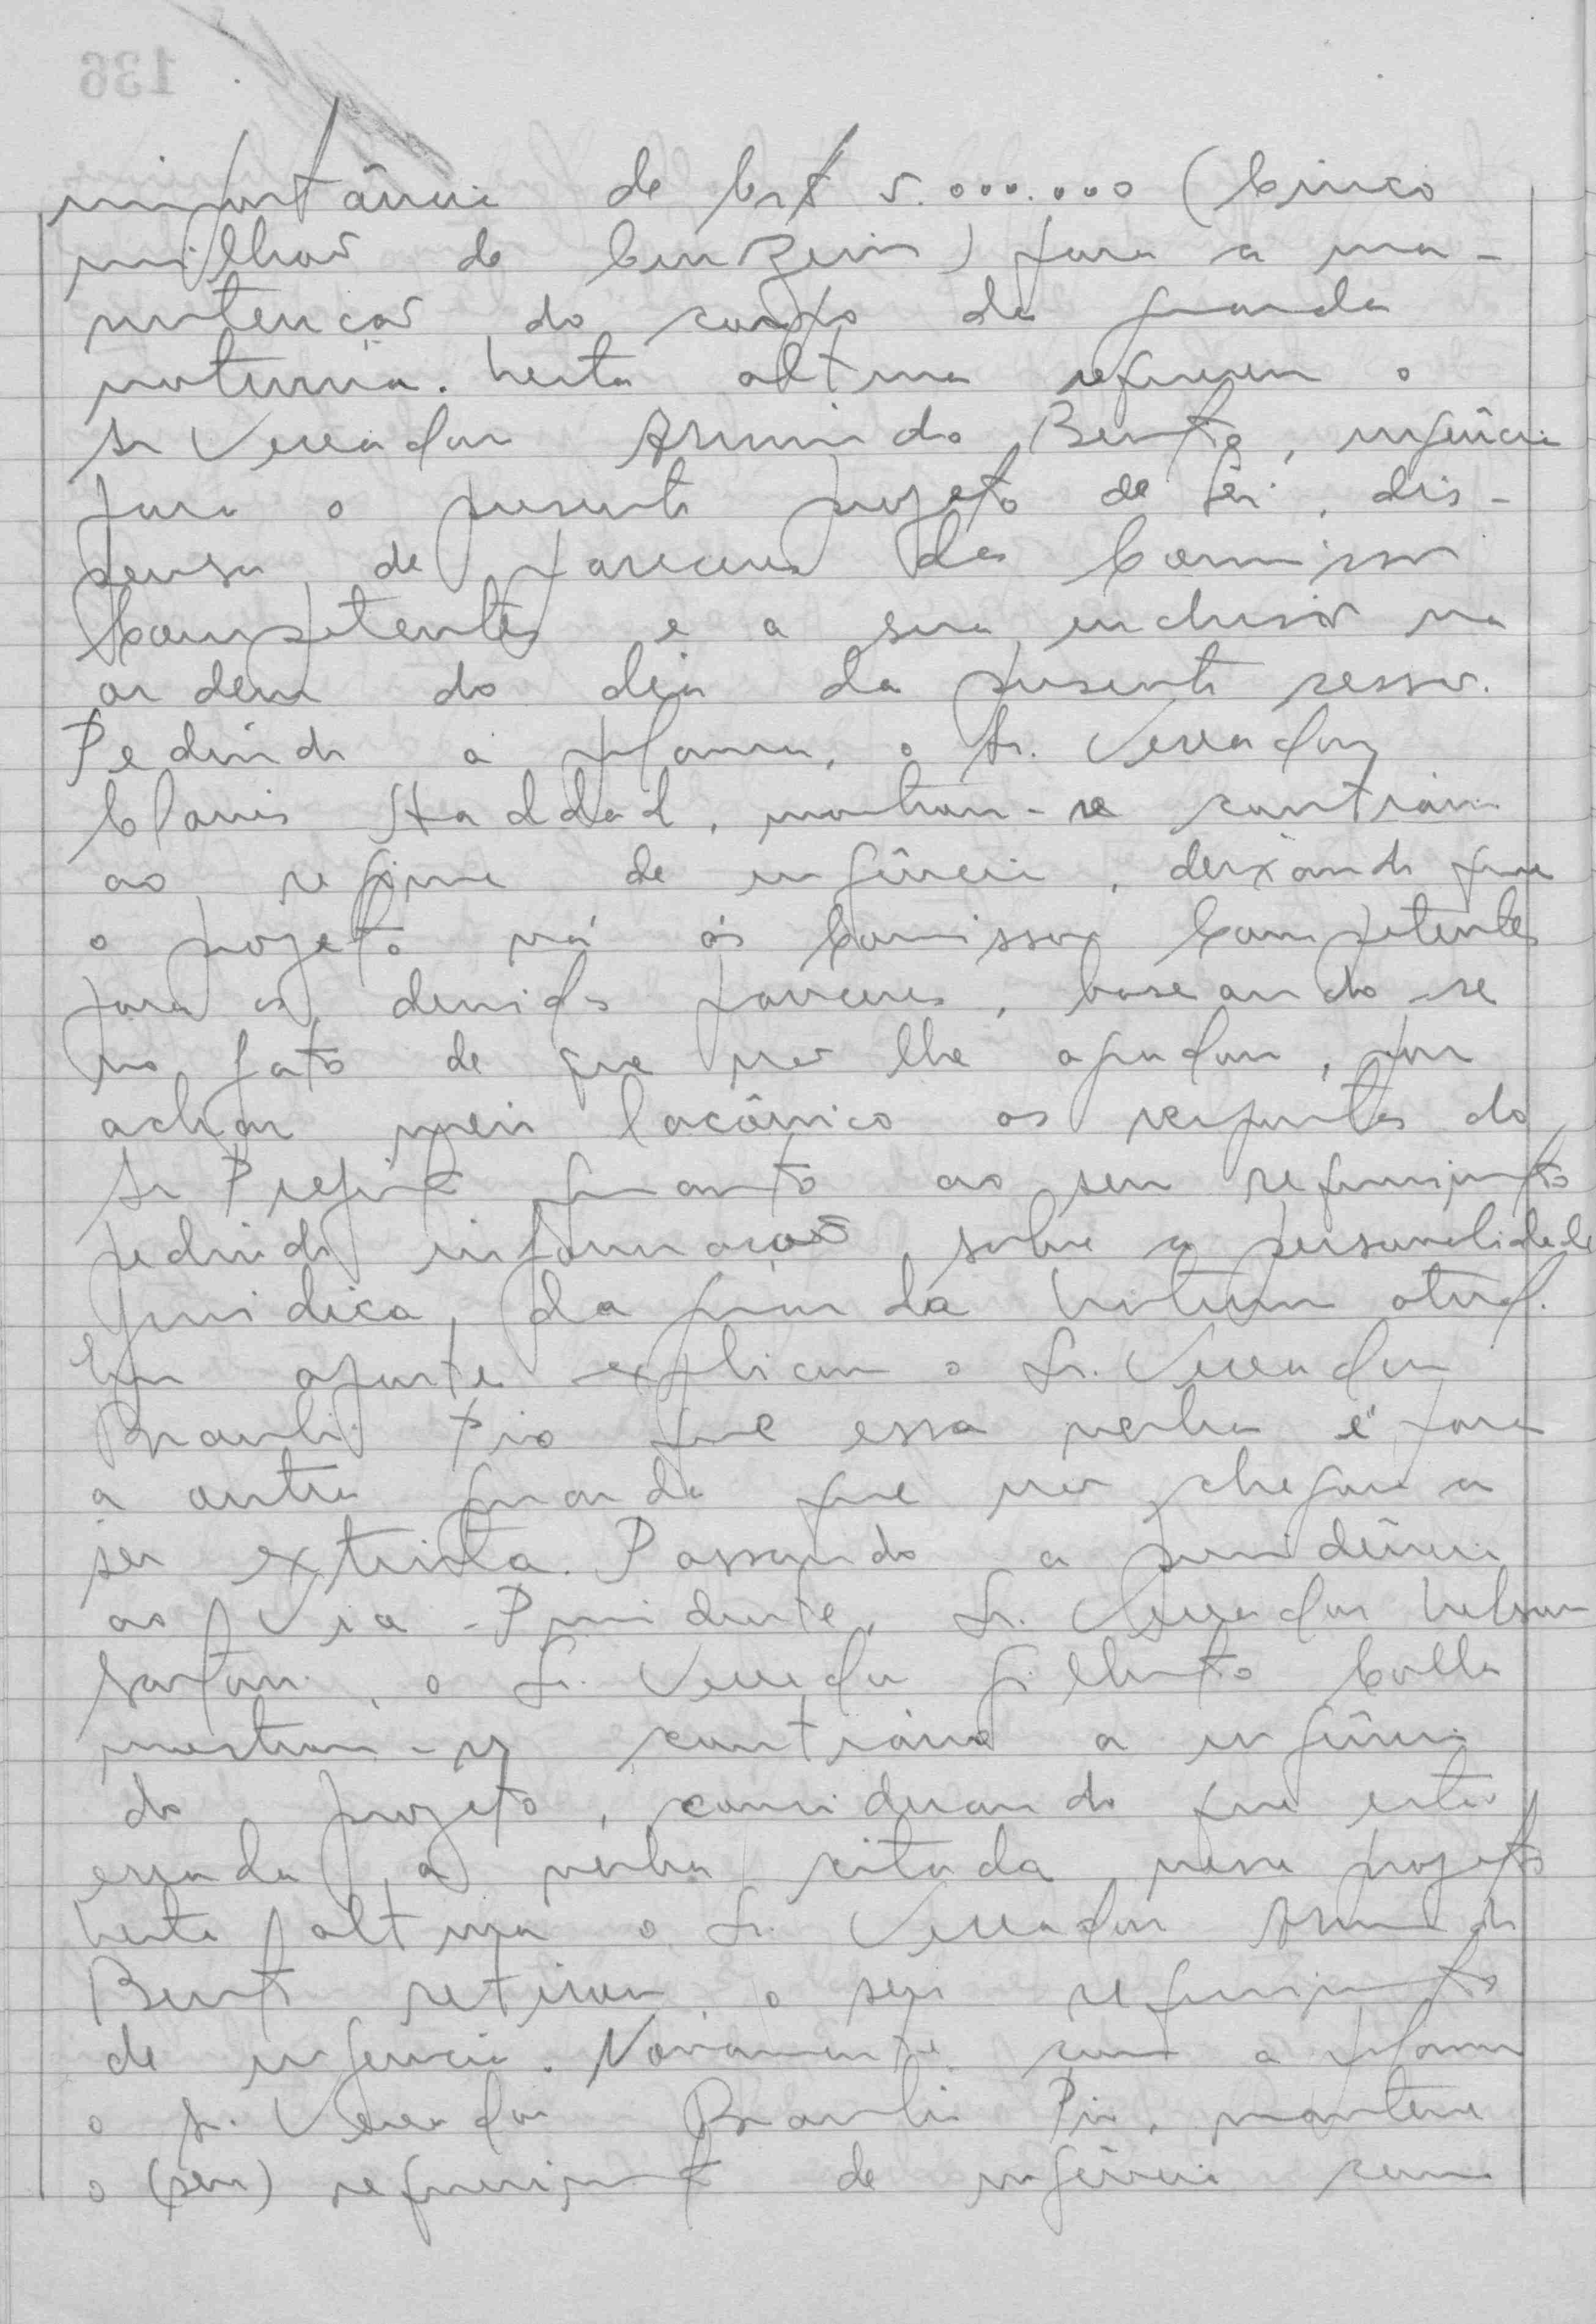 importância de Cr$ 5.000.000 (Cinco
milhões de Cruzeiros) para a ma-
nutenção do corpo da guarda
noturna. Nesta altura requereu o
Sr Vereador Armindo Bento, urgência
para o presente projeto de lei, dis-
pensa de pareceres das Comissões
Competentes e a sua inclusão na
ordem do dia da presente sessão.
Pedindo a palavra, o Sr. Vereador
Clovis Haddad, mostrou-se contrário
ao regime de urgência, deixando que
o projeto vá às Comissões Competentes
para os devidos pareceres, baseando-se
no fato de que não lhe agradou, por
achar meio lacônico as respostas do
Sr Prefeito quanto ao seu requerimento
pedindo informações sobre a personalidade
Juridica, da guarda Noturna atual.
Em aparte explicou o Sr. Vereador
Braulio Pio que essa verba é para
a outra guarda que não chegara a
ser extinta. Passando a presidência
ao Vice-Presidente, Sr. Vereador Nelson
Sartori, o Sr. Vereador Gilberto Colla
mostrou-se contrário a urgência
do projeto, considerando que está
errada a verba citada nesse projeto
Nesta altura o Sr. Vereador Armindo
Bento retirou o seu requerimento
de urgência. Novamente com a palavra
o Sr. Vereador Braulio Pio, manteve
o (seu) requerimento de urgência com